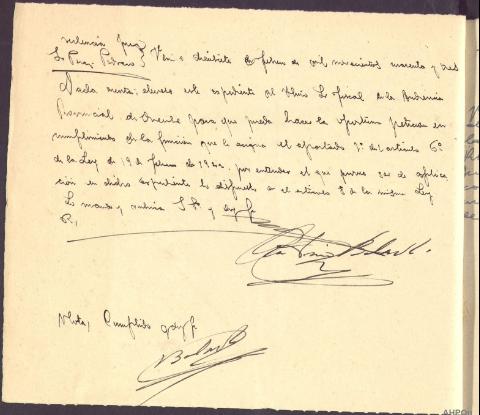 Providencia Juez
Sr Perez Pedrero } Verin a diecisiete de febrero de mil novecientos cuarenta y tres
Dada cuenta; elevese este expediente al Iltmo Sr Fiscal de la Audiencia
Provincial de Orense para que pueda hacer la oportuna peticion en
cumplimiento de la funcion que le asigna el apartado 1º del articulo 6º
de la Ley de 19 de febrero de 1942, por entender el que puede ser de aplica
ción en dicho expediente lo dispuesto en el articulo 8 de la misma Ley
Lo mando y rubrica S Sª y doy fe
Nota; Cumplido doy fe
AHPOU